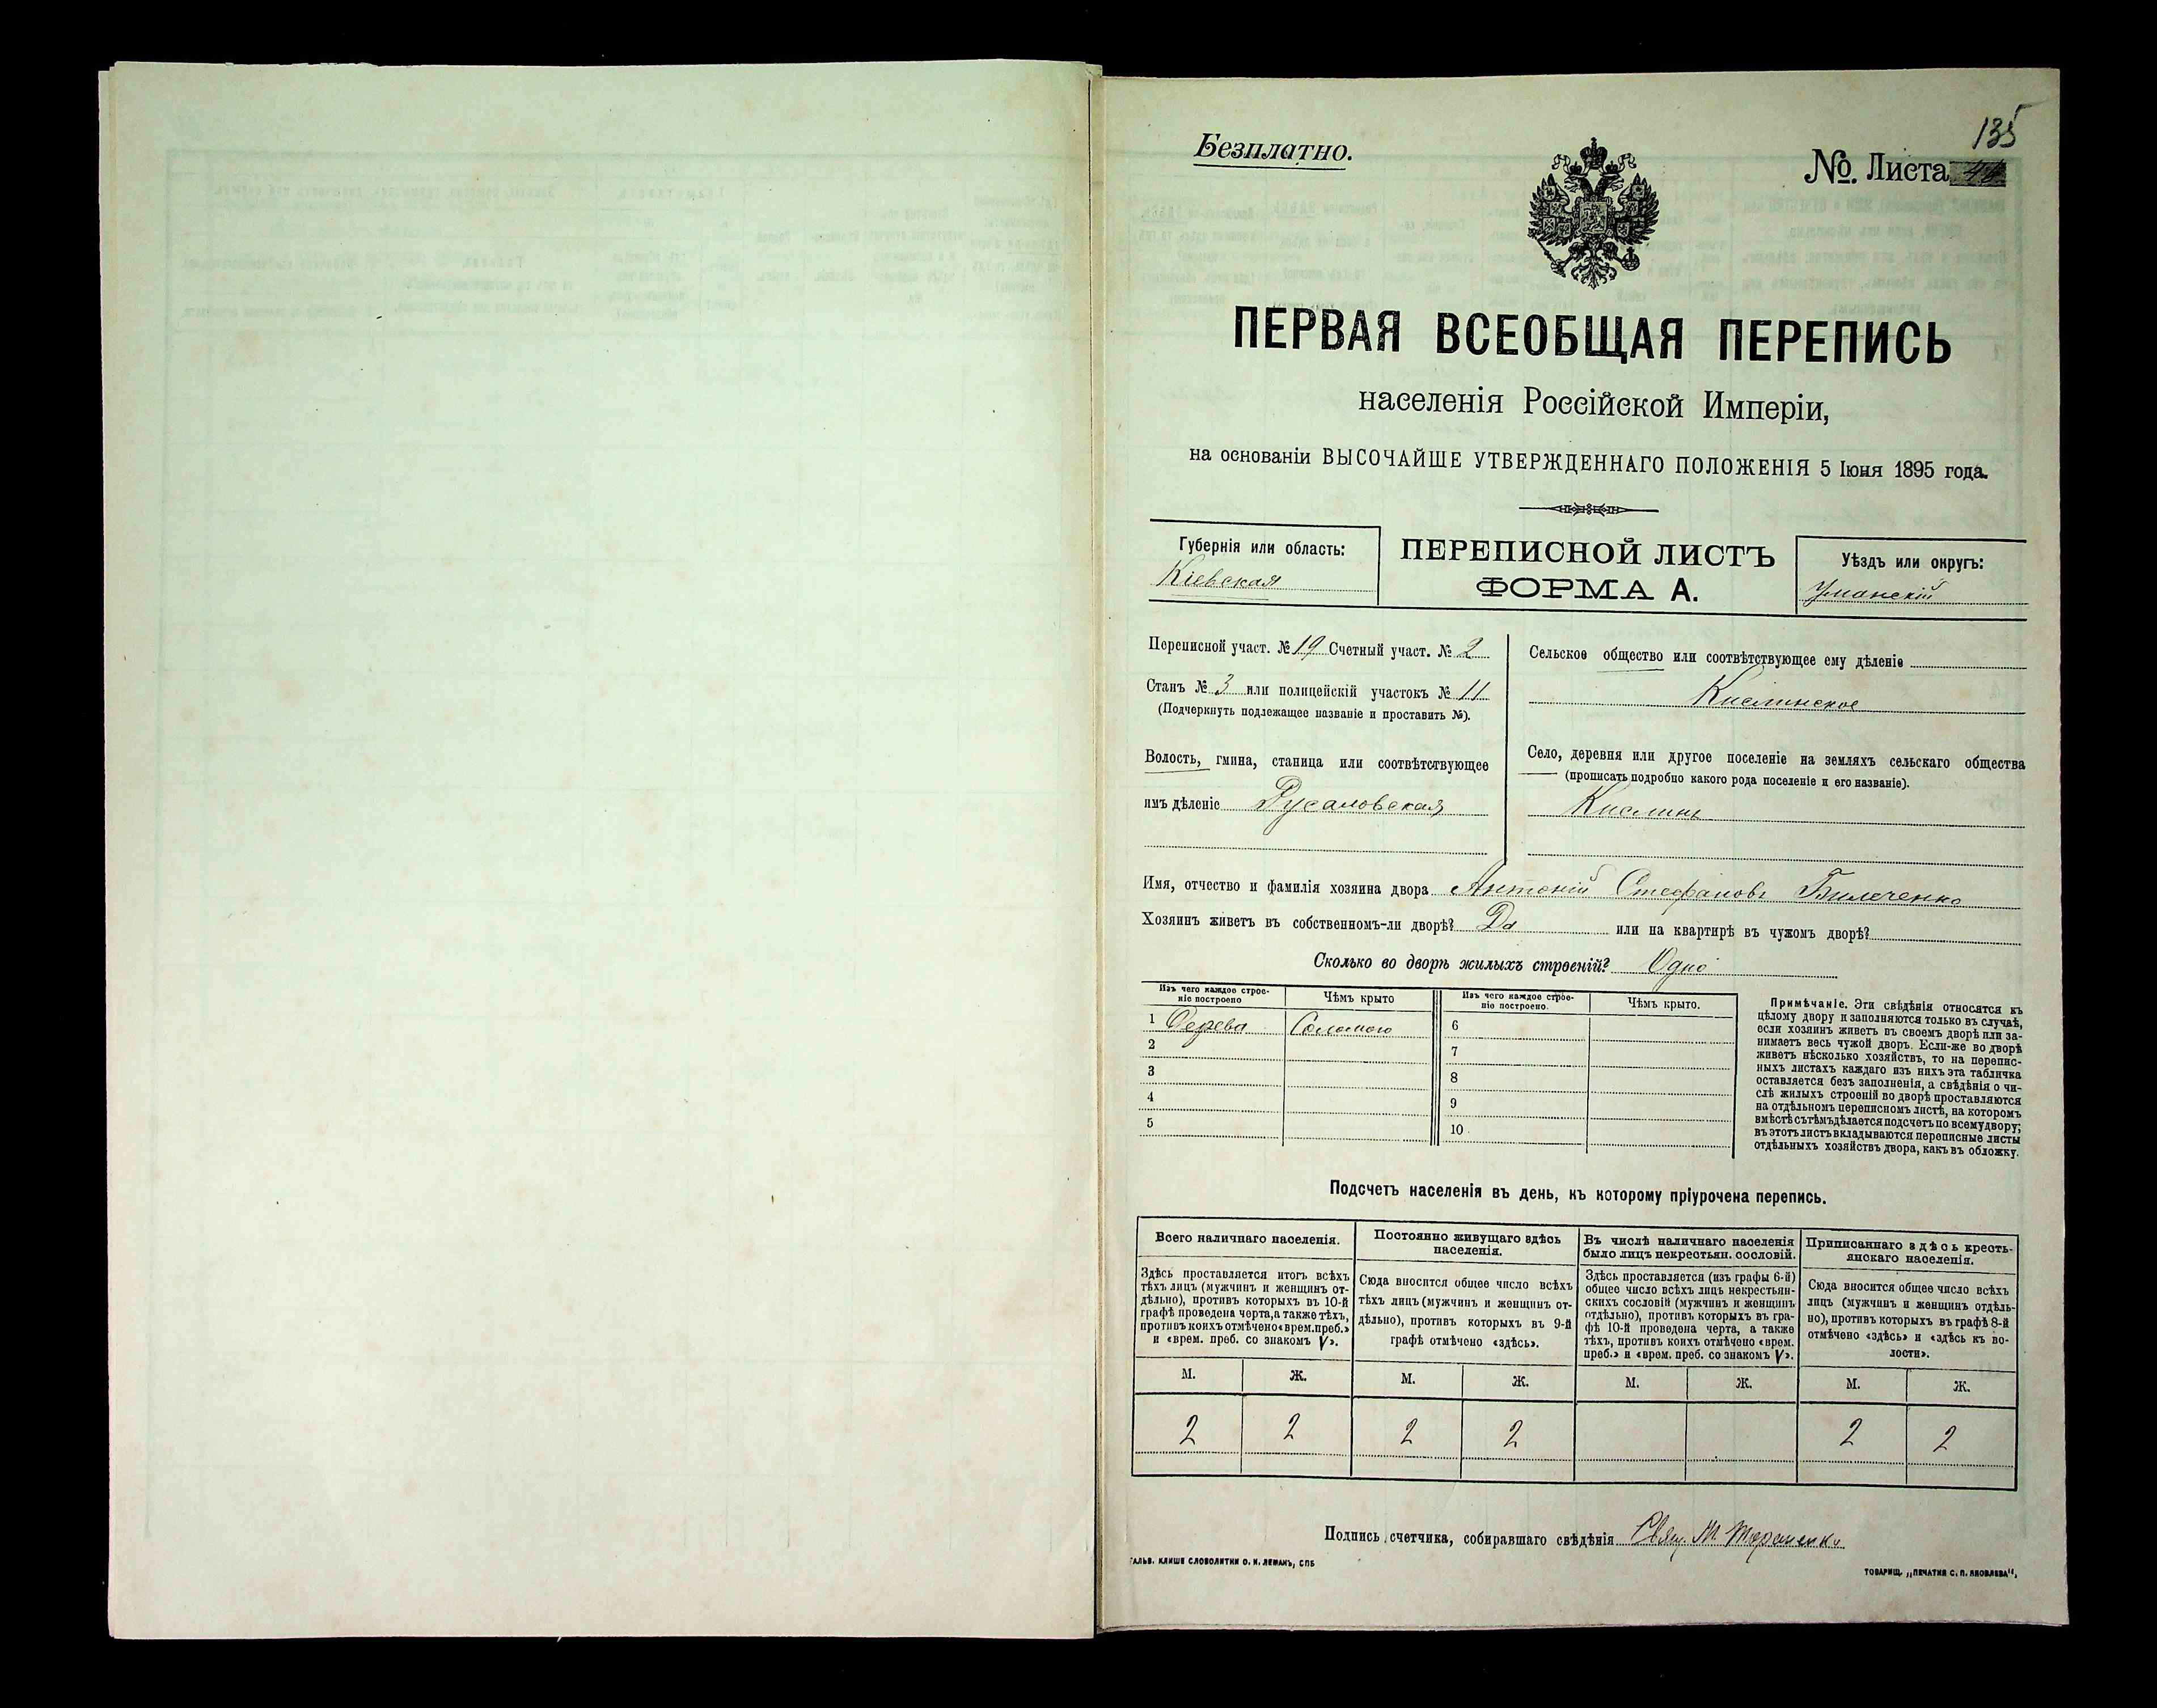 135
Безплатно.
№. Листа
ПЕРВАЯ ВСЕОБЩАЯ ПЕРЕПИСЬ
населенія Россійской Имперіи,
на основаніи ВЫСОЧАЙШЕ УТВЕРЖДЕННАГО ПОЛОЖЕНІЯ 5 Іюня 1895 года.
Губернія или область:
Кіевская
ПЕРЕПИСНОЙ ЛИСТЪ
ФОРМА А.
Уѣздъ или округъ:
Уманскій
Переписной участ. № 19 Счетный участ. № 2
Станъ № 3 или полицейскій участокъ № 11
(Подчеркнуть подлежащее названіе и проставить №).
Волость, гмина, станица или соотвѣтствующее
имъ дѣленіе Русаловская
Сельское общество или соотвѣтствующее ему дѣленіе
Кислинское
Село, деревня или другое поселеніе на земляхъ сельскаго общества
(прописать подробно какого рода поселеніе и его названіе).
Кислинъ
Имя, отчество и фамилія хозяина двора Антоній Стефановъ Билеченко
Хозяинъ живетъ въ собственномъ-ли дворѣ? Да или на квартирѣ въ чужомъ дворѣ?
Сколько во дворѣ жилыхъ строеній? Одно
Изъ чего каждое строе-
ніе построено
Чѣмъ крыто
Изъ чего каждое строе-
ніе построено.
Чѣмъ крыто.
1 Дерева Соломою 6
2 7
3 8
4 9
5 10
Примѣчаніе. Эти свѣдѣнія относятся къ
цѣлому двору и заполняются только въ случаѣ,
если хозяинъ живетъ въ своемъ дворѣ или за-
нимаетъ весь чужой дворъ. Если-же во дворѣ
живетъ нѣсколько хозяйствъ, то на перепис-
ныхъ листахъ каждаго изъ нихъ эта табличка
оставляется безъ заполненія, а свѣдѣнія о чи-
слѣ жилыхъ строеній во дворѣ проставляются
на отдѣльномъ переписномъ листѣ, на которомъ
вмѣстѣ съ тѣмъ дѣлается подсчетъ по всему двору;
въ этотъ листъ вкладываются переписные листы
отдѣльныхъ хозяйствъ двора, какъ въ обложку.
Подсчетъ населенія въ день, къ которому пріурочена перепись.
Всего наличнаго населенія.
Здѣсь проставляется итогъ всѣхъ
тѣхъ лицъ (мужчинъ и женщинъ от-
дѣльно), противъ которыхъ въ 10-й
графѣ проведена черта, а также тѣхъ,
противъ коихъ отмѣчено «врем. преб.»
и «врем. преб. со знакомъ V».
Постоянно живущаго здѣсь
населенія.
Сюда вносится общее число всѣхъ
тѣхъ лицъ (мужчинъ и женщинъ от-
дѣльно), противъ которыхъ въ 9-й
графѣ отмѣчено «здѣсь».
Въ числѣ наличнаго населенія
было лицъ некрестьян. сословій.
Здѣсь проставляется (изъ графы 6-й)
общее число всѣхъ лицъ некрестьян-
скихъ сословій (мужчинъ и женщинъ
отдѣльно), противъ которыхъ въ гра-
фѣ 10-й проведена черта, а также
тѣхъ, противъ коихъ отмѣчено «врем.
преб.» и «врем. преб. со знакомъ V».
Приписаннаго здѣсь кресть-
янскаго населенія.
Сюда вносится общее число всѣхъ
лицъ (мужчинъ и женщинъ отдѣль-
но), противъ которыхъ въ графѣ 8-й
отмѣчено «здѣсь» и «здѣсь къ во-
лости».
М. Ж. М. Ж. М. Ж. М. Ж.
2 2 2 2 2 2
Подпись счетчика, собиравшаго свѣдѣнія Свящ. М. Тараненко
ГАЛЬВ. КЛИШЕ СЛОВОЛИТНИ О. И. ЛЕМАНЪ, СПБ
ТОВАРИЩ. „ПЕЧАТНЯ С. П. ЯКОВЛЕВА",